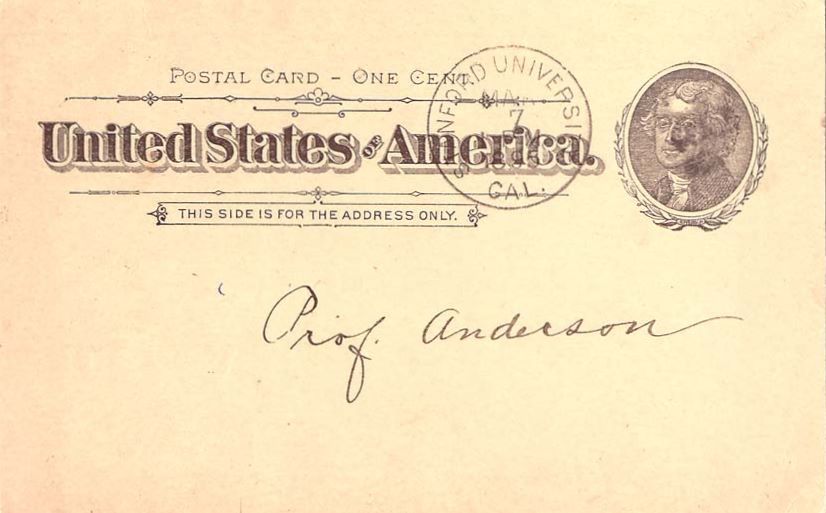 POSTAL CARD – ONE CENT.
United States OF America.
THIS SIDE IS FOR THE ADDRESS ONLY.
STANFORD UNIVERSI
7
CAL.
Prof. Anderson